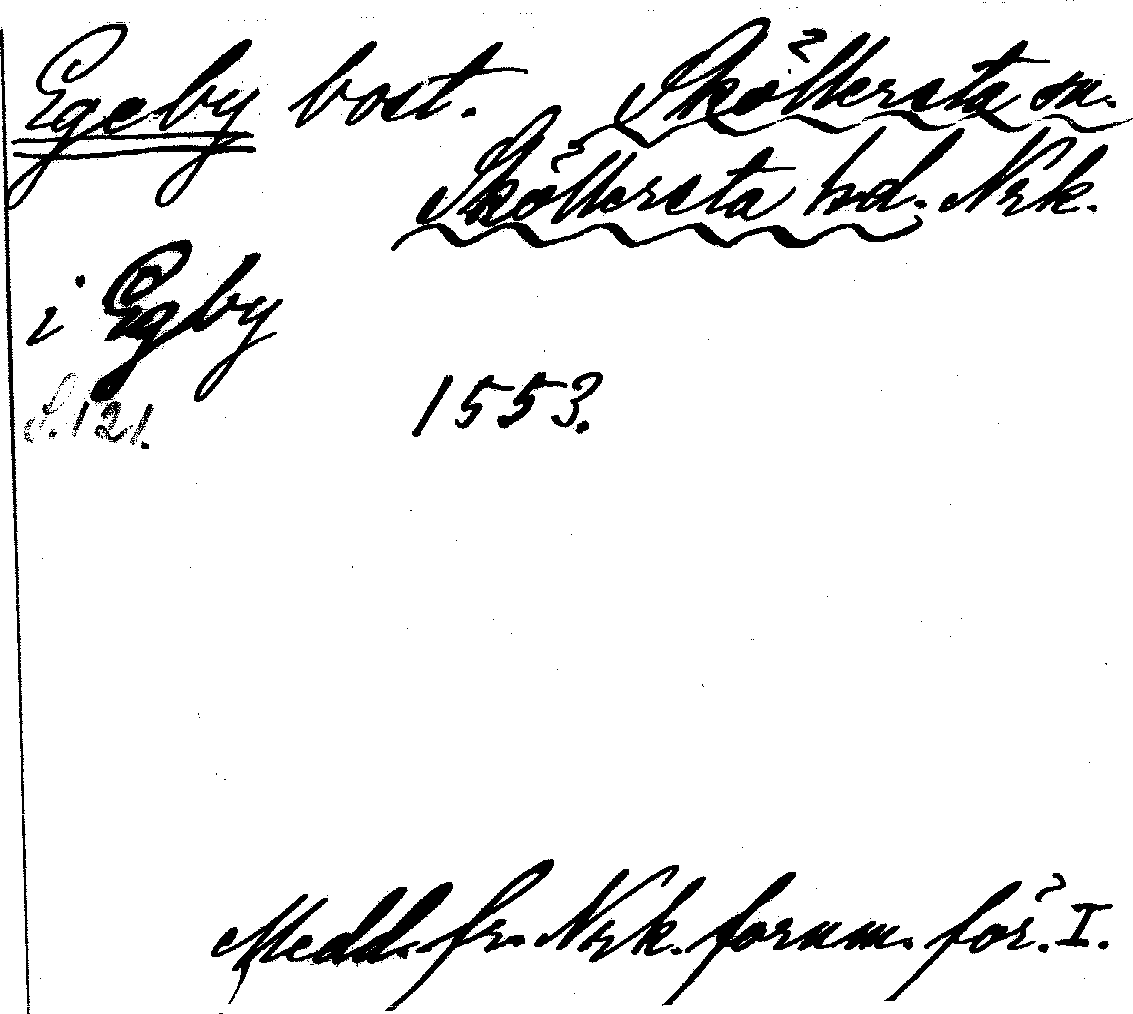 Egeby bost. Sköllersta sn.
Sköllersta hd. Nrk.
i Egby
S. 121. 1553.
Medd. fr. Nrk. fornm. för. I.